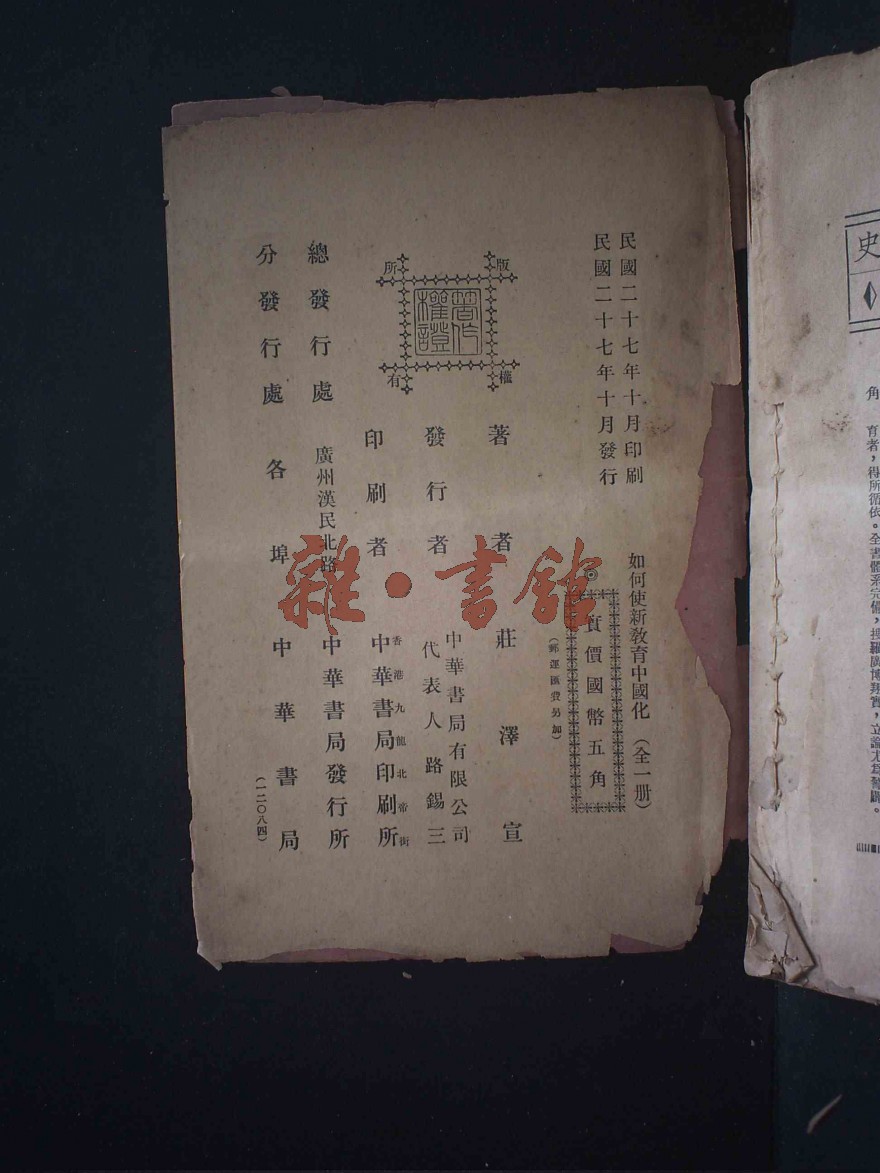 民國二十七年十月印刷
民國二十七年十月發行
如何使新教育中國化（全一册）
◎實價國幣五角
（郵運匯費另加）
版權所有
著作權證
著者 莊澤宣
發行者 中華書局有限公司
代表人路錫三
印刷者 香港九龍北帝街
中華書局印刷所
總發行處 廣州漢民北路 中華書局發行所
分發行處 各埠 中華書局
（一二〇八四）
雜·書館
史
角
育者，得所循依。全書體系完備，搜羅廣博翔實，立論尤爲警闢。